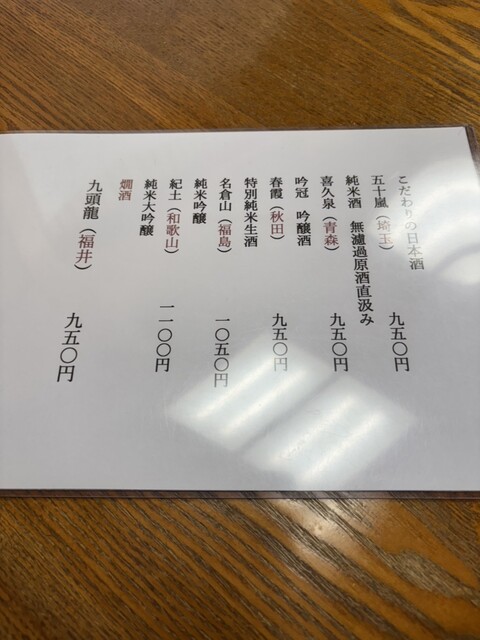 こだわりの日本酒
五十嵐（埼玉） 九五〇円
純米酒 無濾過原酒直汲み
喜久泉（青森） 九五〇円
吟冠 吟醸酒
春霞（秋田） 九五〇円
特別純米生酒
名倉山（福島） 一〇五〇円
純米吟醸
紀土（和歌山） 一一〇〇円
純米大吟醸
燗酒
九頭龍（福井） 九五〇円